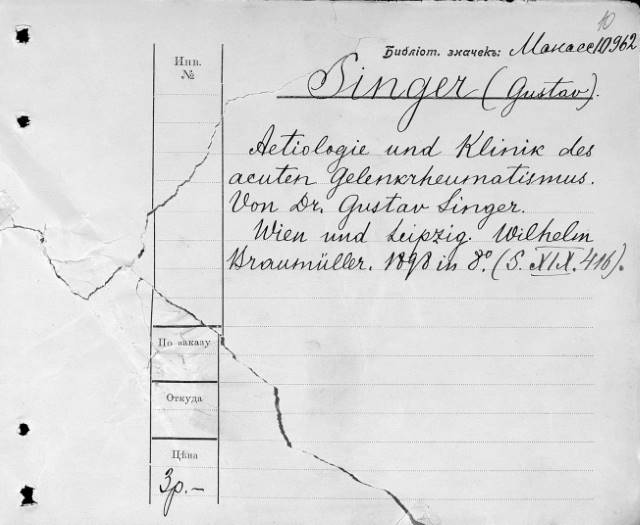 10
Библіот. значекъ: Манасс 10962
Инв.
№
Singer (Gustav).
Aetiologie und Klinik des
acuten Gelenkrheumatismus.
Von Dr. Gustav Singer.
Wien und Leipzig. Wilhelm
Braumüller. 1898 in 8°. (S. XIX. 416).
По заказу
Откуда
Цѣна
3р.-